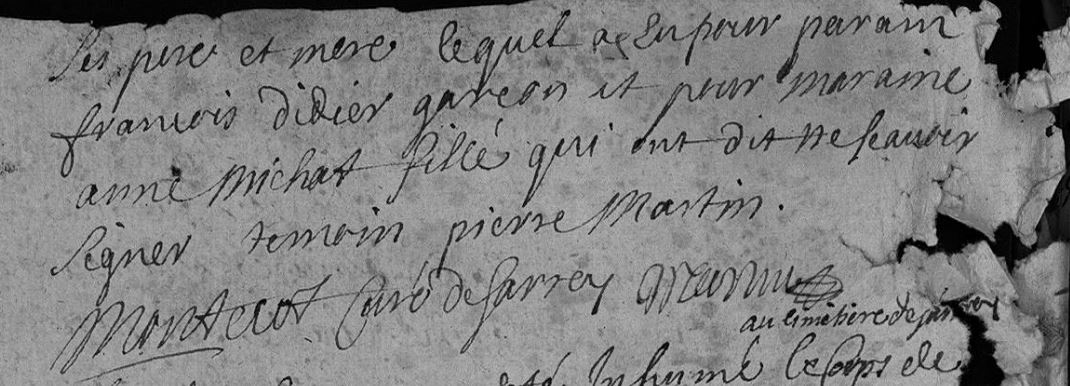 ses pere et mere lequel a eu pour parain
francois didier garcon et pour maraine
anne Michat fille qui ont dit ne scavoir
signer temoin pierre Martin.
Montecot curé de sarrey Martin
au cimetiere de sarrey
été Inhumé le corps de